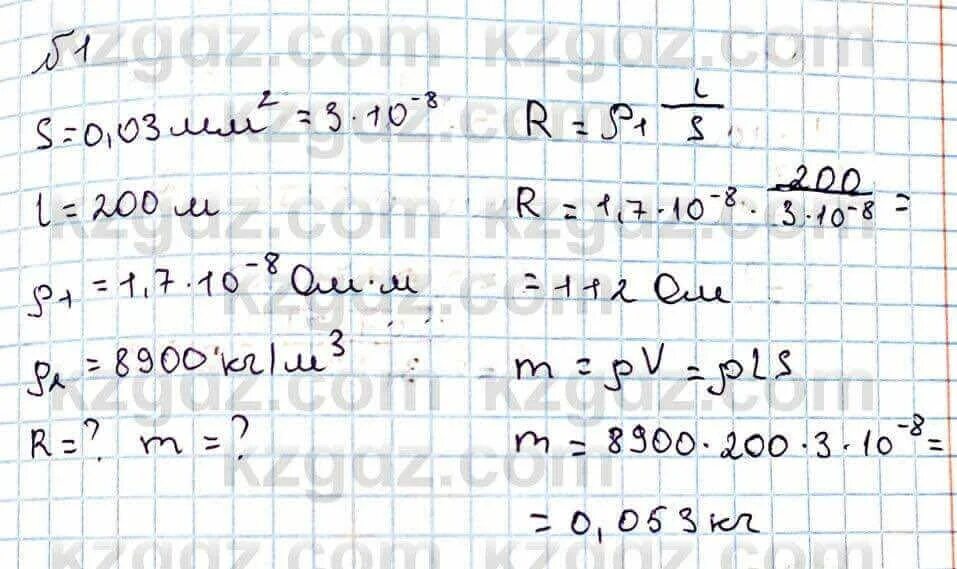 №1
S = 0,03 мм² = 3·10⁻⁸
l = 200 м
ρ₁ = 1,7·10⁻⁸ Ом·м
ρ₂ = 8900 кг/м³
R = ? m = ?
R = ρ₁ l/S
R = 1,7·10⁻⁸ · 200/3·10⁻⁸ =
= 112 Ом
m = ρV = ρlS
m = 8900·200·3·10⁻⁸ =
= 0,053 кг
kzgdz.com